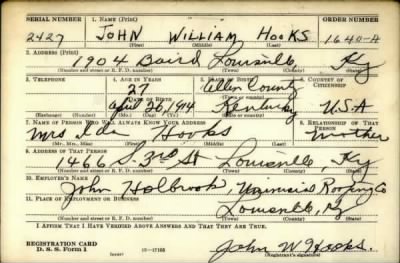 SERIAL NUMBER 1. NAME (Print) ORDER NUMBER
2427 JOHN WILLIAM HOOKS 1640-A
(First) (Middle) (Last)
2. ADDRESS (Print)
1904 Baird Louisville Ky
(Number and street or R. F. D. number) (Town) (County) (State)
3. TELEPHONE 4. AGE IN YEARS 5. PLACE OF BIRTH 6. COUNTRY OF CITIZENSHIP
27 Allen County
DATE OF BIRTH (Town or county)
April 26, 1914 Kentucky U.S.A
(Exchange) (Number) (Mo.) (Day) (Yr.) (State or country)
7. NAME OF PERSON WHO WILL ALWAYS KNOW YOUR ADDRESS 8. RELATIONSHIP OF THAT PERSON
Mrs Ida Hooks Mother
(Mr., Mrs., Miss) (First) (Middle) (Last)
9. ADDRESS OF THAT PERSON
1466 S. 3rd St Louisville, Ky
(Number and street or R. F. D. number) (Town) (County) (State)
10. EMPLOYER'S NAME
John Holbrook, Roofing Co
11. PLACE OF EMPLOYMENT OR BUSINESS
Louisville, Ky
(Number and street or R. F. D. number) (Town) (County) (State)
I AFFIRM THAT I HAVE VERIFIED ABOVE ANSWERS AND THAT THEY ARE TRUE.
REGISTRATION CARD
D. S. S. Form 1 (over) John W Hooks.
(Registrant's signature)